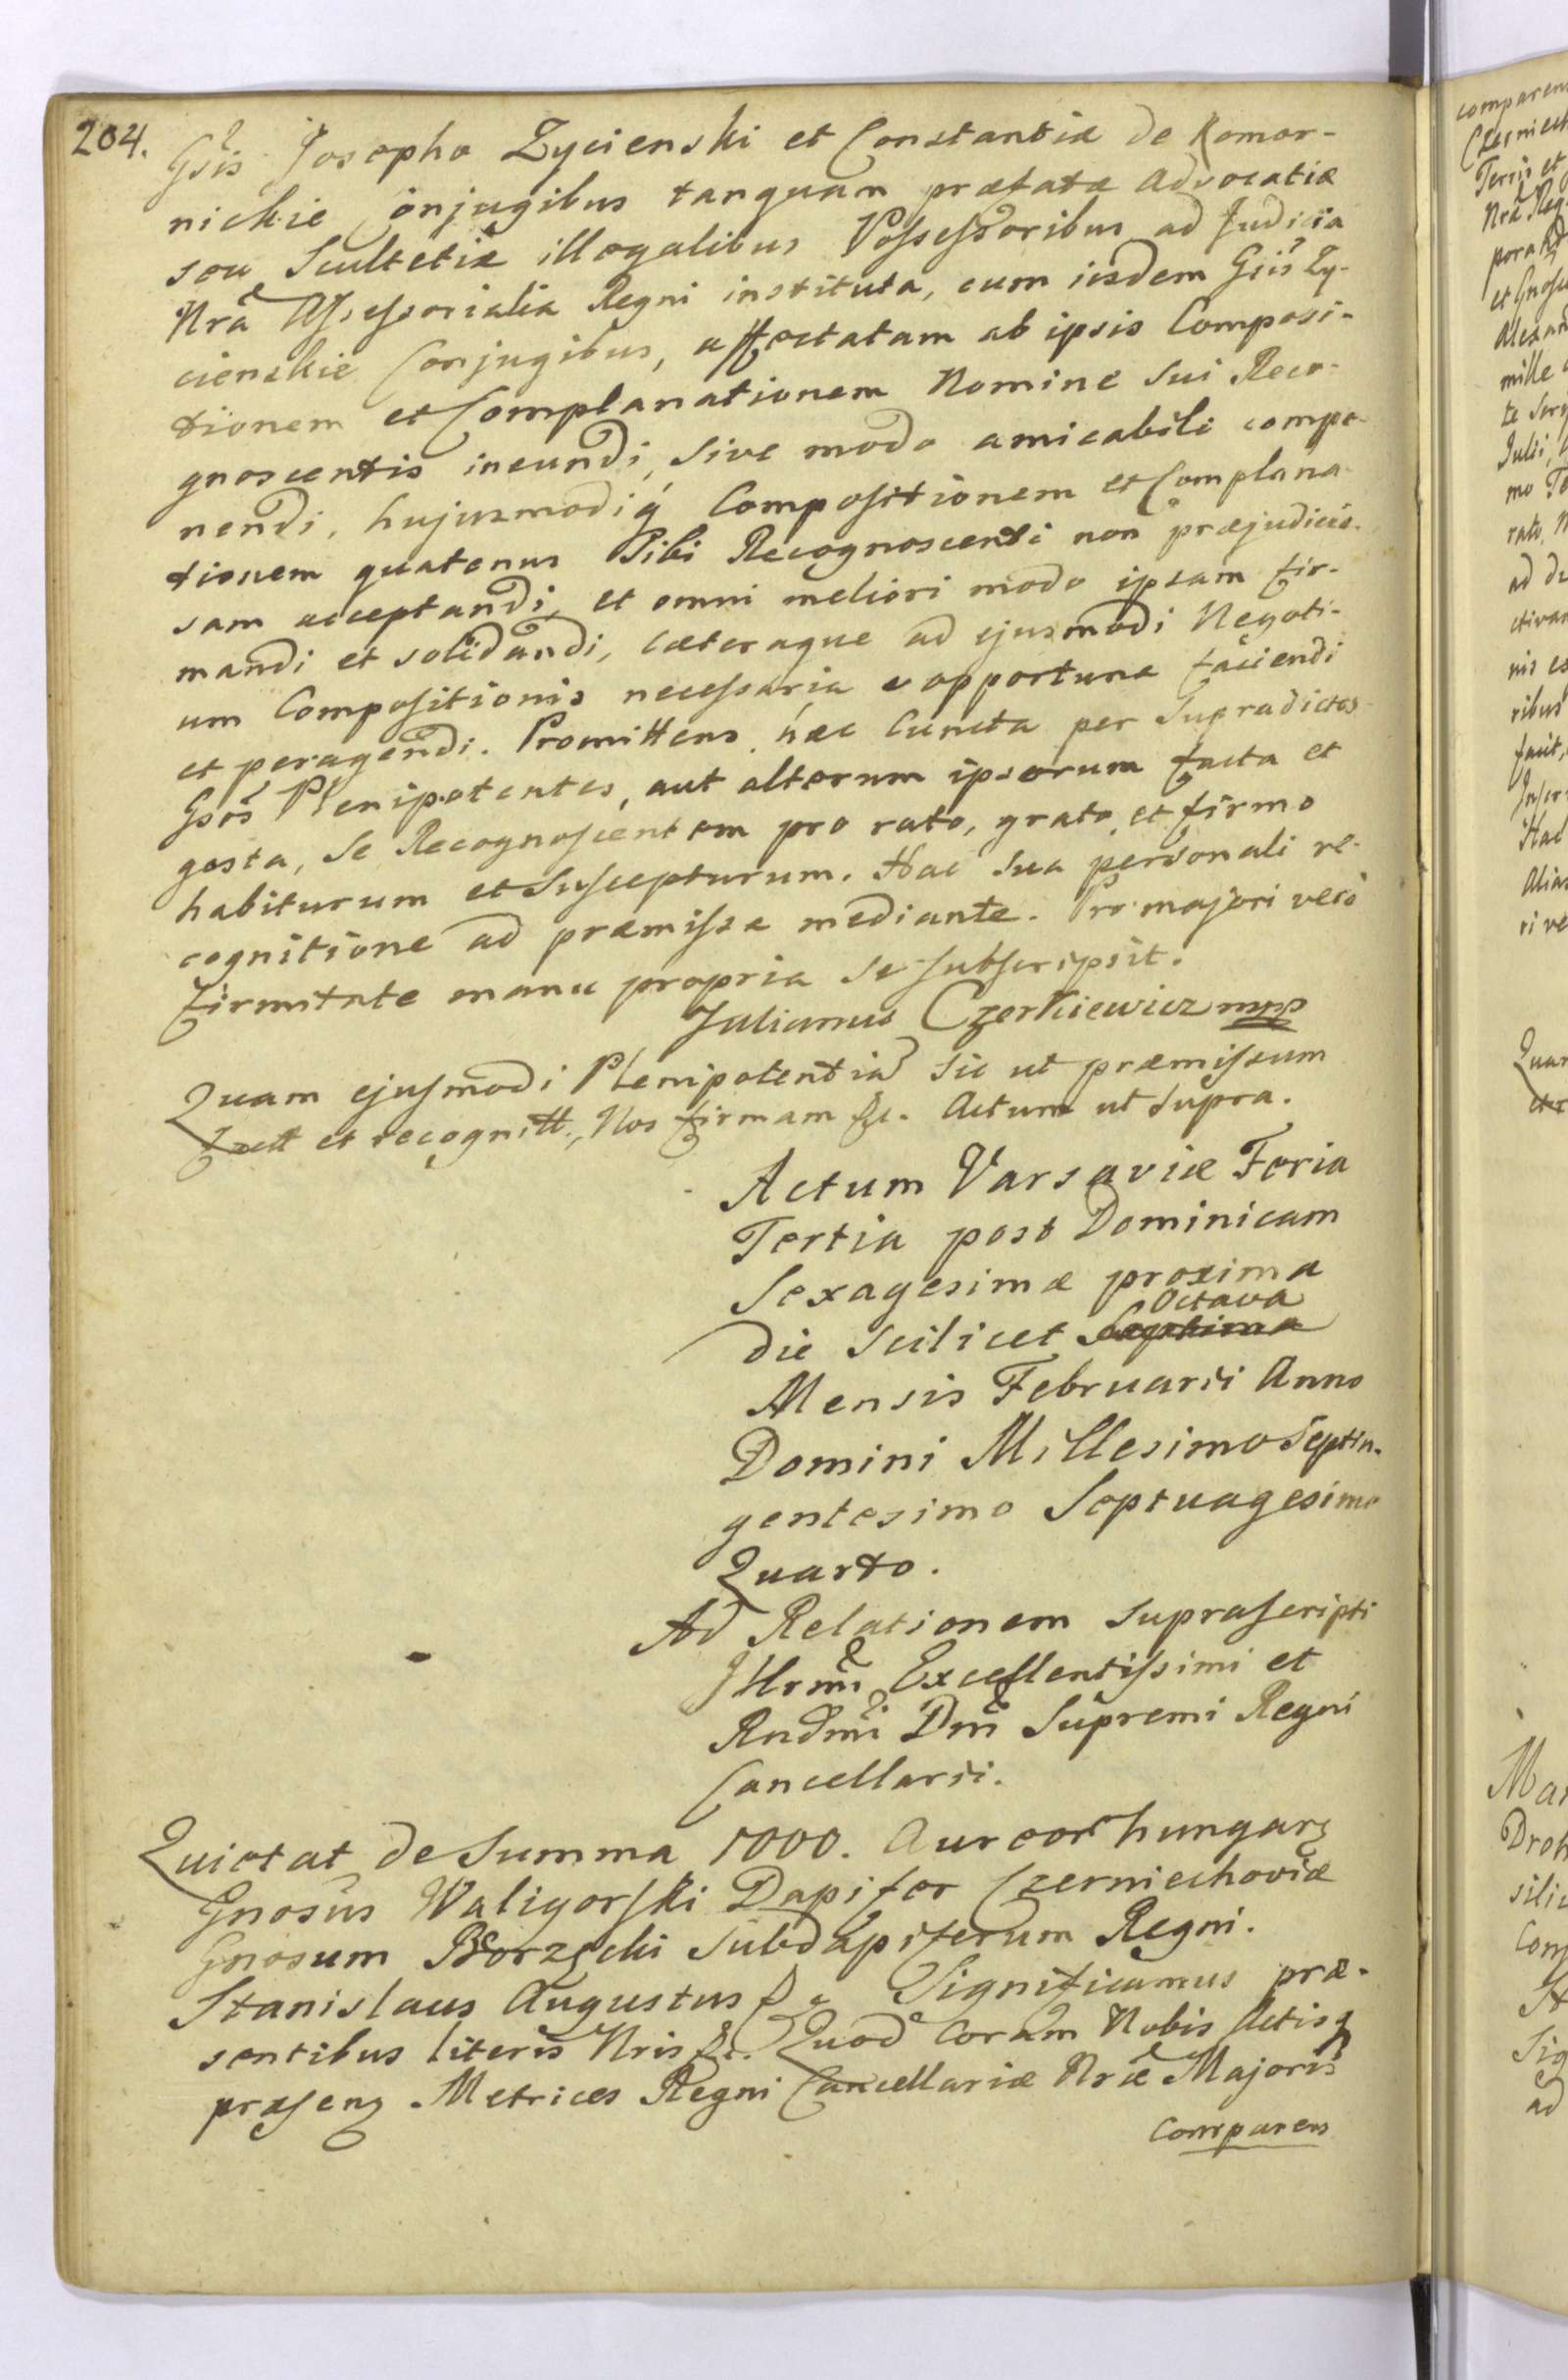 204.
Gsis Josepho Zycienski et Constantiæ de Komor-
nickie Conjugibus tanquam præfatæ Advocatiæ
seu Scultetiæ illegalibus Possessoribus ad Judicia
Nrâ Assessorialia Regni instituta, cum iisdem Gsis Zy-
cienskie Conjugibus, affectatam ab ipsis Composi-
tionem et Complanationem Nomine Sui Reco-
gnoscentis ineundi, sive modo amicabili compo-
nendi, hujusmodiq́ Compositionem et Complana-
tionem quatenus Sibi Recognoscenti non præjudicio-
sam acceptandi, et omni meliori modo ipsam fir-
mandi et solidandi, cæteraque ad ejusmodi Negoti-
um Compositionis necessaria e opportuna faciendi
et peragendi. Promittens hæc Cuncta per Supradictos
Gsos Plenipotentes, aut alterum ipsorum facta et
gesta, Se Recognoscentem pro rato, grato et firmo
habiturum et Suscepturum. Hac Sua personali re-
cognitione ad præmissa mediante. Pro majori verò
firmitate manu propria se subscripsit.
Julianus Czerkiewicz mpp
Quam ejusmodi Plenipotentiã Sic ut præmissum
factt et recognitt., Nos firmam &c. Actum ut Supra.
Actum Varsaviæ Feria
Tertia post Dominicam
Sexagesimæ proxima
Octava
die scilicet Septima
Mensis Februarii Anno
Domini Millesimo Septin-
gentesimo Septuagesimo
Quarto.
Ad Relationem suprascripti
Jllrmi Excellentissimi et
Rndmi Dni Supremi Regni
Cancellarii.
Quietat de Summa 1000. Aureor hungar
Gnosus Waligorski Dapifer Czerniechoviæ
Gnosum Borzęcki Subdapiferum Regni.
Stanislaus Augustus &c Significamus præ-
sentibus literis Nris &c. Quod Coram Nobis Actisq
præsen Metrices Regni Cancellariæ Nræ Majoris
Comparens